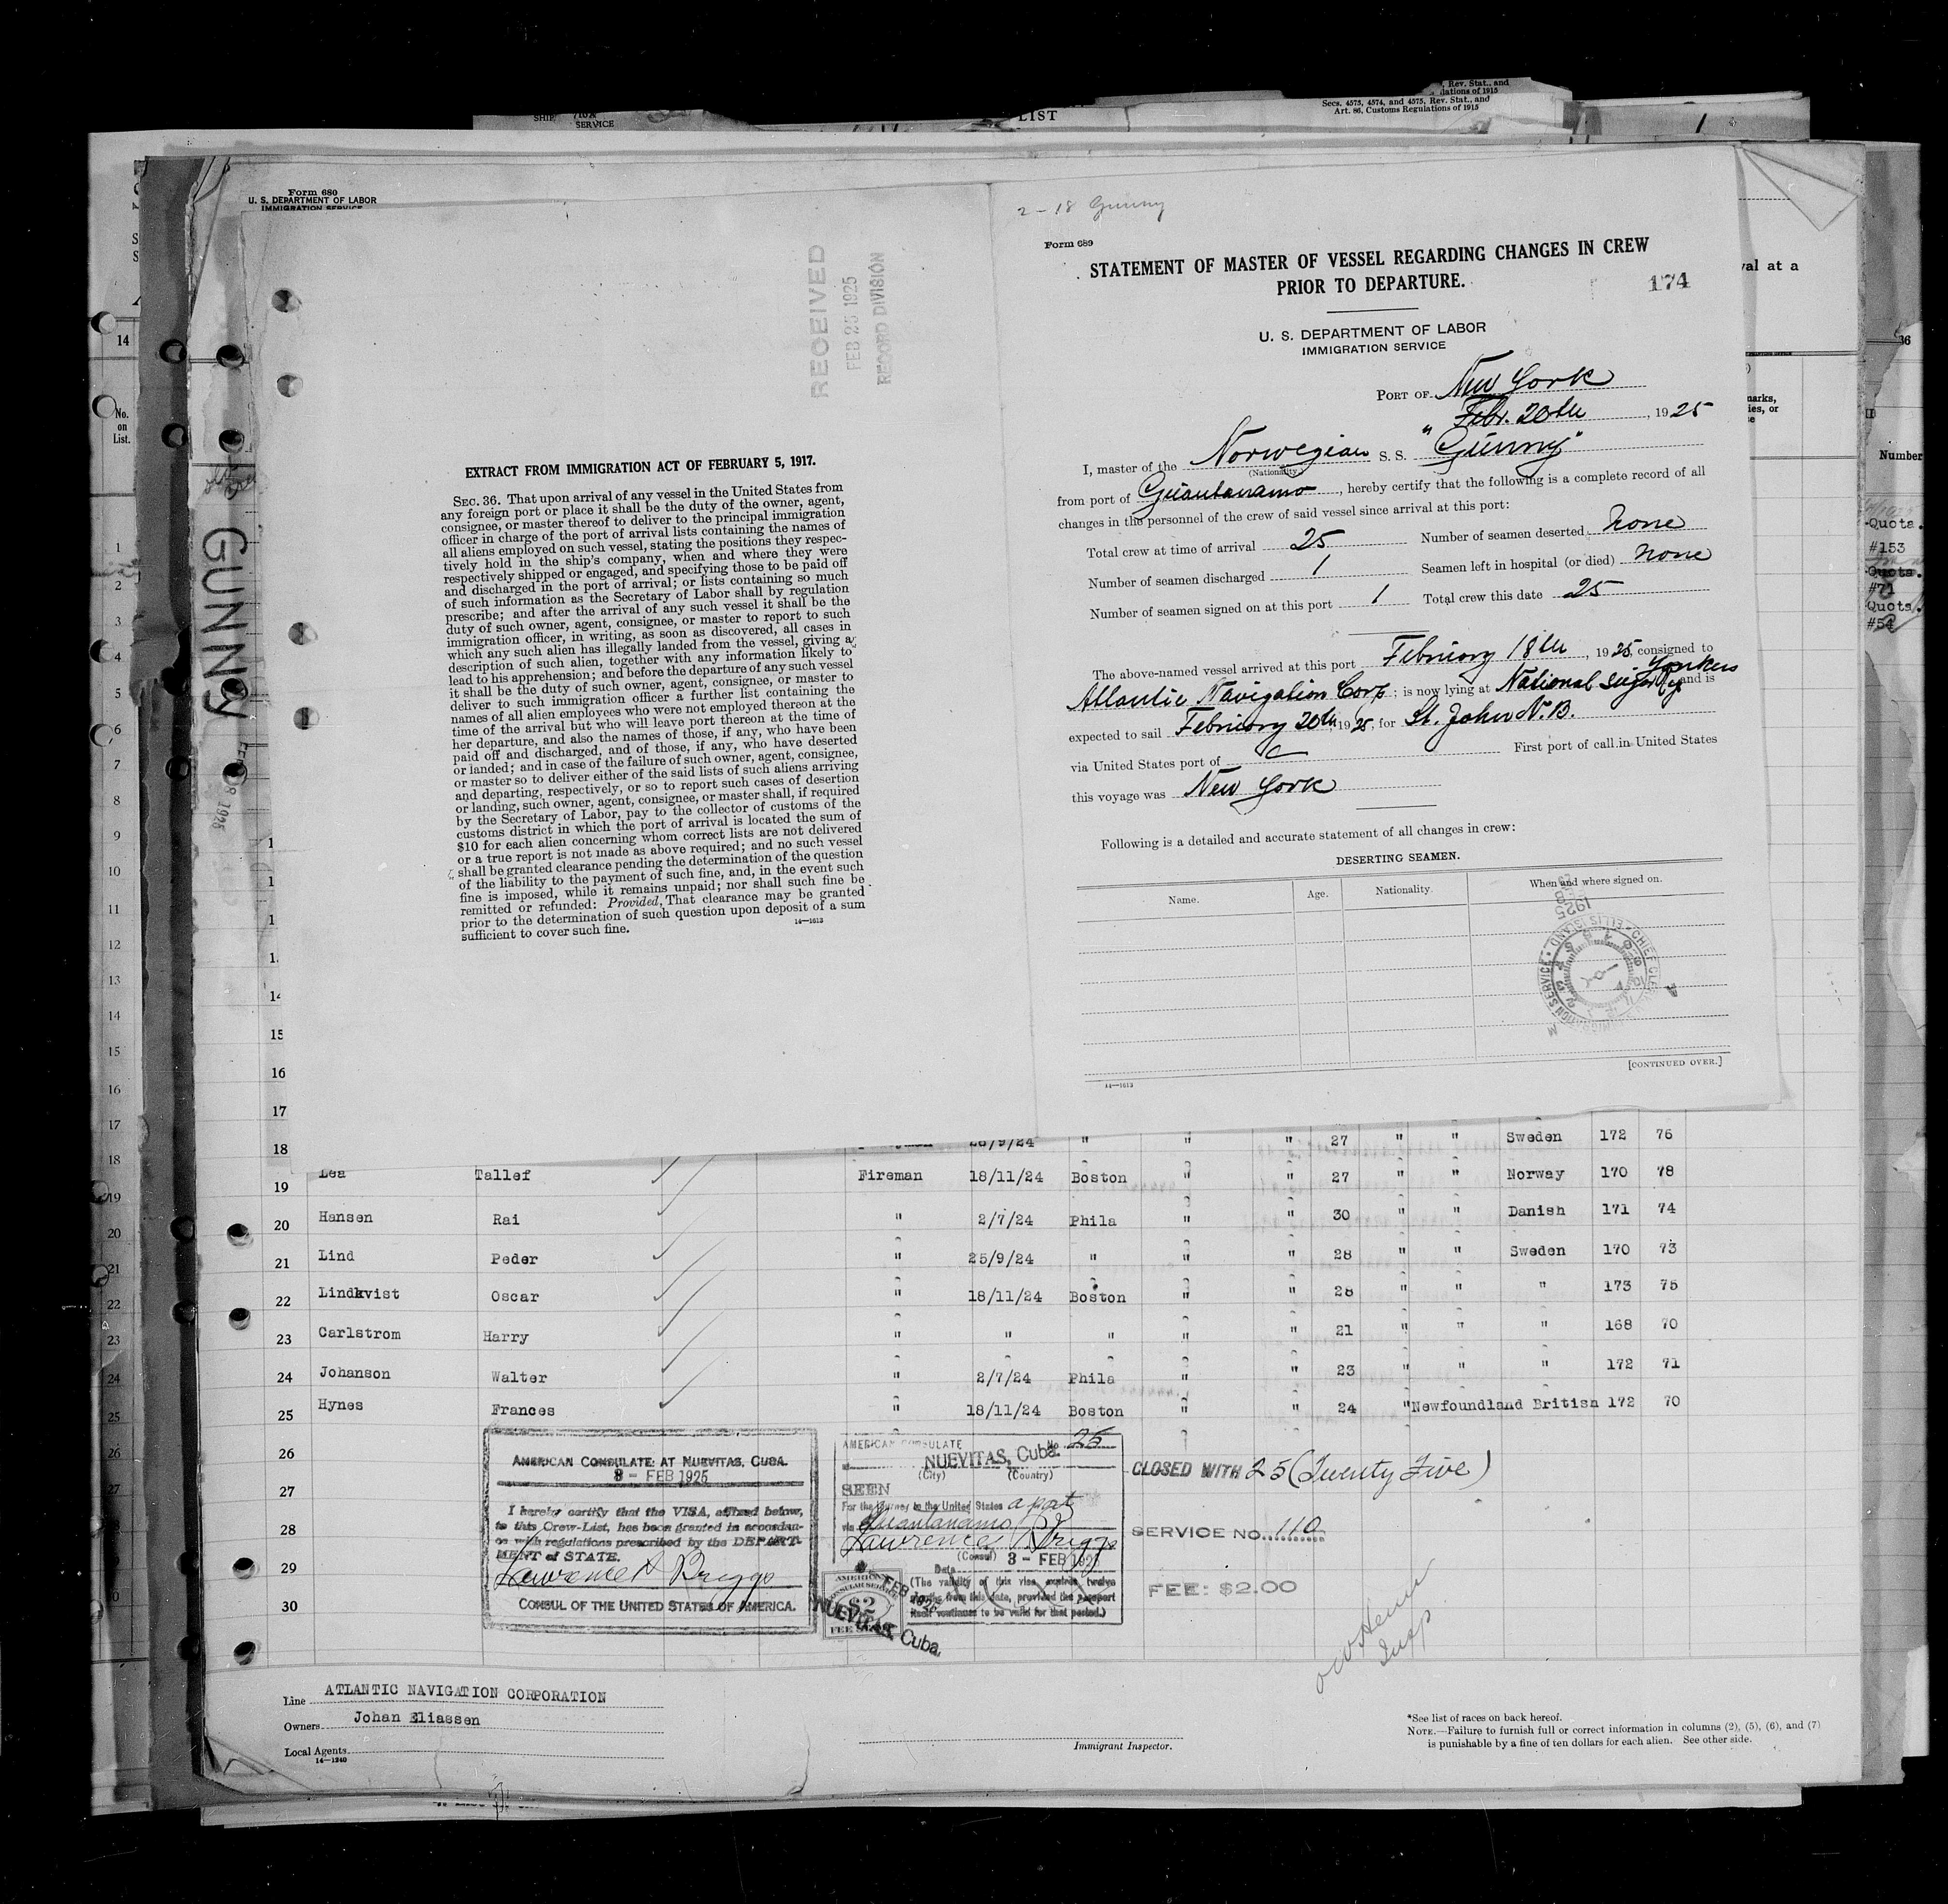 SHIP
SERVICE
LIST
, Rev. Stat., and
lations of 1915
Secs. 4573, 4574, and 4575, Rev. Stat., and
Art. 86, Customs Regulations of 1915
Form 680
U. S. DEPARTMENT OF LABOR
IMMIGRATION SERVICE
RECEIVED
FEB 25 1925
RECORD DIVISION
EXTRACT FROM IMMIGRATION ACT OF FEBRUARY 5, 1917.
SEC. 36. That upon arrival of any vessel in the United States from
any foreign port or place it shall be the duty of the owner, agent,
consignee, or master thereof to deliver to the principal immigration
officer in charge of the port of arrival lists containing the names of
all aliens employed on such vessel, stating the positions they respec-
tively hold in the ship's company, when and where they were
respectively shipped or engaged, and specifying those to be paid off
and discharged in the port of arrival; or lists containing so much
of such information as the Secretary of Labor shall by regulation
prescribe; and after the arrival of any such vessel it shall be the
duty of such owner, agent, consignee, or master to report to such
immigration officer, in writing, as soon as discovered, all cases in
which any such alien has illegally landed from the vessel, giving a
description of such alien, together with any information likely to
lead to his apprehension; and before the departure of any such vessel
it shall be the duty of such owner, agent, consignee, or master to
deliver to such immigration officer a further list containing the
names of all alien employees who were not employed thereon at the
time of the arrival but who will leave port thereon at the time of
her departure, and also the names of those, if any, who have been
paid off and discharged, and of those, if any, who have deserted
or landed; and in case of the failure of such owner, agent, consignee,
or master so to deliver either of the said lists of such aliens arriving
and departing, respectively, or so to report such cases of desertion
or landing, such owner, agent, consignee, or master shall, if required
by the Secretary of Labor, pay to the collector of customs of the
customs district in which the port of arrival is located the sum of
$10 for each alien concerning whom correct lists are not delivered
or a true report is not made as above required; and no such vessel
shall be granted clearance pending the determination of the question
of the liability to the payment of such fine, and, in the event such
fine is imposed, while it remains unpaid; nor shall such fine be
remitted or refunded: Provided, That clearance may be granted
prior to the determination of such question upon deposit of a sum
sufficient to cover such fine.
14—1613
2-18 Gunny
Form 689
STATEMENT OF MASTER OF VESSEL REGARDING CHANGES IN CREW
PRIOR TO DEPARTURE.
174
U. S. DEPARTMENT OF LABOR
IMMIGRATION SERVICE
PORT OF New York
Febr. 20th, 1925
I, master of the Norwegian S. S. "Gunny"
(Nationality)
from port of Guantanamo, hereby certify that the following is a complete record of all
changes in the personnel of the crew of said vessel since arrival at this port:
Total crew at time of arrival 25 Number of seamen deserted none
Number of seamen discharged 1 Seamen left in hospital (or died) none
Number of seamen signed on at this port 1 Total crew this date 25
The above-named vessel arrived at this port February 18th, 1925 consigned to
Atlantic Navigation Corp; is now lying at National Sugar Yonkers and is
expected to sail February 20th, 1925, for St. John N.B.
via United States port of First port of call in United States
this voyage was New York
Following is a detailed and accurate statement of all changes in crew:
DESERTING SEAMEN.
Name. Age. Nationality. When and where signed on.
IMMIGRATION SERVICE · ELLIS ISLAND · CHIEF CLERK
1925
[CONTINUED OVER.]
14—1613
val at a
Number
Quota.
#153
Quota.
#71
Quota.
#54
GUNNY
No.
on
List.
18 26/9/24 " " " 27 " " Sweden 172 76
19 Lea Tallef Fireman 18/11/24 Boston " " 27 " " Norway 170 78
20 Hansen Rai " 2/7/24 Phila " " 30 " " Danish 171 74
21 Lind Peder " 25/9/24 " " " 28 " " Sweden 170 73
22 Lindkvist Oscar " 18/11/24 Boston " " 28 " " " 173 75
23 Carlstrom Harry " " " " " 21 " " " 168 70
24 Johanson Walter " 2/7/24 Phila " " 23 " " " 172 71
25 Hynes Frances " 18/11/24 Boston " " 24 " Newfoundland British 172 70
26
27
28
29
30
AMERICAN CONSULATE AT NUEVITAS, CUBA.
3 - FEB 1925
I hereby certify that the VISA, affixed below,
to this Crew-List, has been granted in accordan-
ce with regulations prescribed by the DEPART-
MENT of STATE.
Lawrence P. Briggs
CONSUL OF THE UNITED STATES OF AMERICA.
AMERICAN CONSULATE No. 25
NUEVITAS, Cuba.
(City) (Country)
SEEN
For the journey to the United States a port
via Guantanamo
Lawrence P. Briggs
(Consul) 3 - FEB 1925
Date
(The validity of this visa expires twelve
months from this date, provided the passport
itself continues to be valid for that period.)
AMERICAN
CONSULAR SERVICE
$2
FEE STAMP
FEB 1925
NUEVITAS, Cuba.
CLOSED WITH 25 (Twenty Five)
SERVICE NO. 110
FEE: $2.00
Insp
Line ATLANTIC NAVIGATION CORPORATION
Owners Johan Eliassen
Local Agents
14—1240
Immigrant Inspector.
*See list of races on back hereof.
NOTE.—Failure to furnish full or correct information in columns (2), (5), (6), and (7)
is punishable by a fine of ten dollars for each alien. See other side.